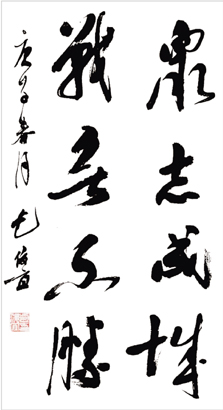 眾志成城
戰無不勝
庚子春月